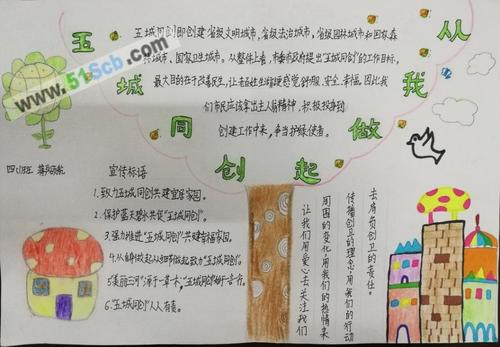 五城同创
从我做起
五城同创即创建省级文明城市,省级法治城市,省级园林城市和国家森
林城市、国家卫生城市。从整体上看,市委市政府提出"五城同创"的工作目标,
最大目的在于改善民生,让老百姓生活感觉舒服、安全、幸福。因此我
们市民应该拿出主人翁精神,积极投身到
创建工作中来,争当护绿使者。
www.51Scb.com
四(1)班
宣传标语
1.致力五城同创共建宜居家园。
2.保护蓝天碧水共促"五城同创"。
3.强力推进"五城同创"共建幸福家园。
4.从身边做起从细节做起致力"五城同创"。
5.美丽三河"源于一草一木;"五城同创"
6."五城同创"人人有责。
去肩负创卫的责任。
传播创卫的理念,用我们的行动
周围的变化,用我们的热情来
让我们用爱心去关注我们